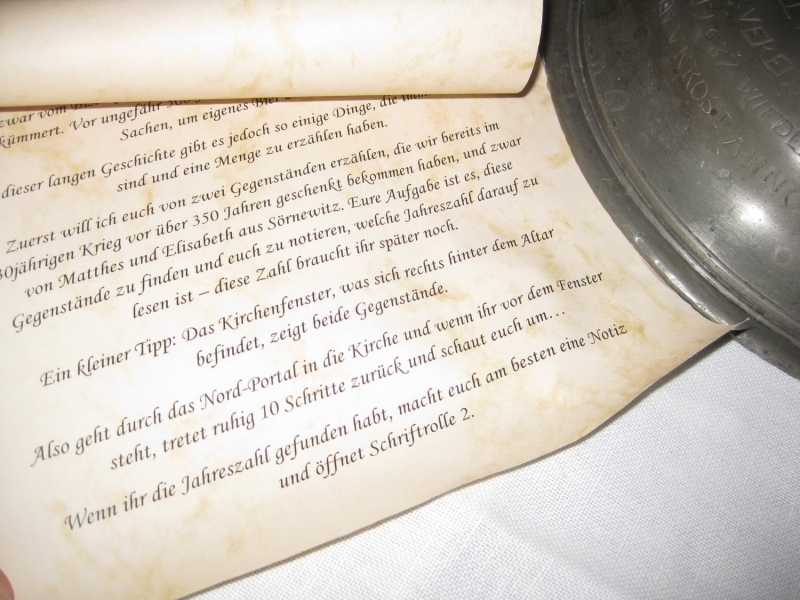 zwar vom
kümmert. Vor ungefähr 500
Sachen, um eigenes Bier
dieser langen Geschichte gibt es jedoch so einige Dinge, die
sind und eine Menge zu erzählen haben.
Zuerst will ich euch von zwei Gegenständen erzählen, die wir bereits im
30jährigen Krieg vor über 350 Jahren geschenkt bekommen haben, und zwar
von Matthes und Elisabeth aus Sörnewitz. Eure Aufgabe ist es, diese
Gegenstände zu finden und euch zu notieren, welche Jahreszahl darauf zu
lesen ist – diese Zahl braucht ihr später noch.
Ein kleiner Tipp: Das Kirchenfenster, was sich rechts hinter dem Altar
befindet, zeigt beide Gegenstände.
Also geht durch das Nord-Portal in die Kirche und wenn ihr vor dem Fenster
steht, tretet ruhig 10 Schritte zurück und schaut euch um...
Wenn ihr die Jahreszahl gefunden habt, macht euch am besten eine Notiz
und öffnet Schriftrolle 2.